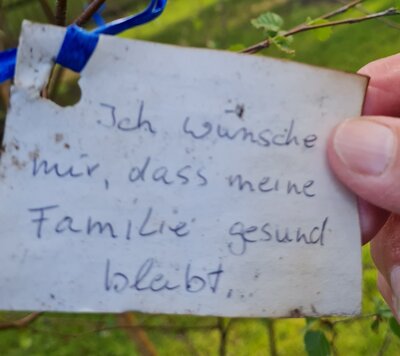 Ich wünsche
mir, dass meine
Familie gesund
bleibt...